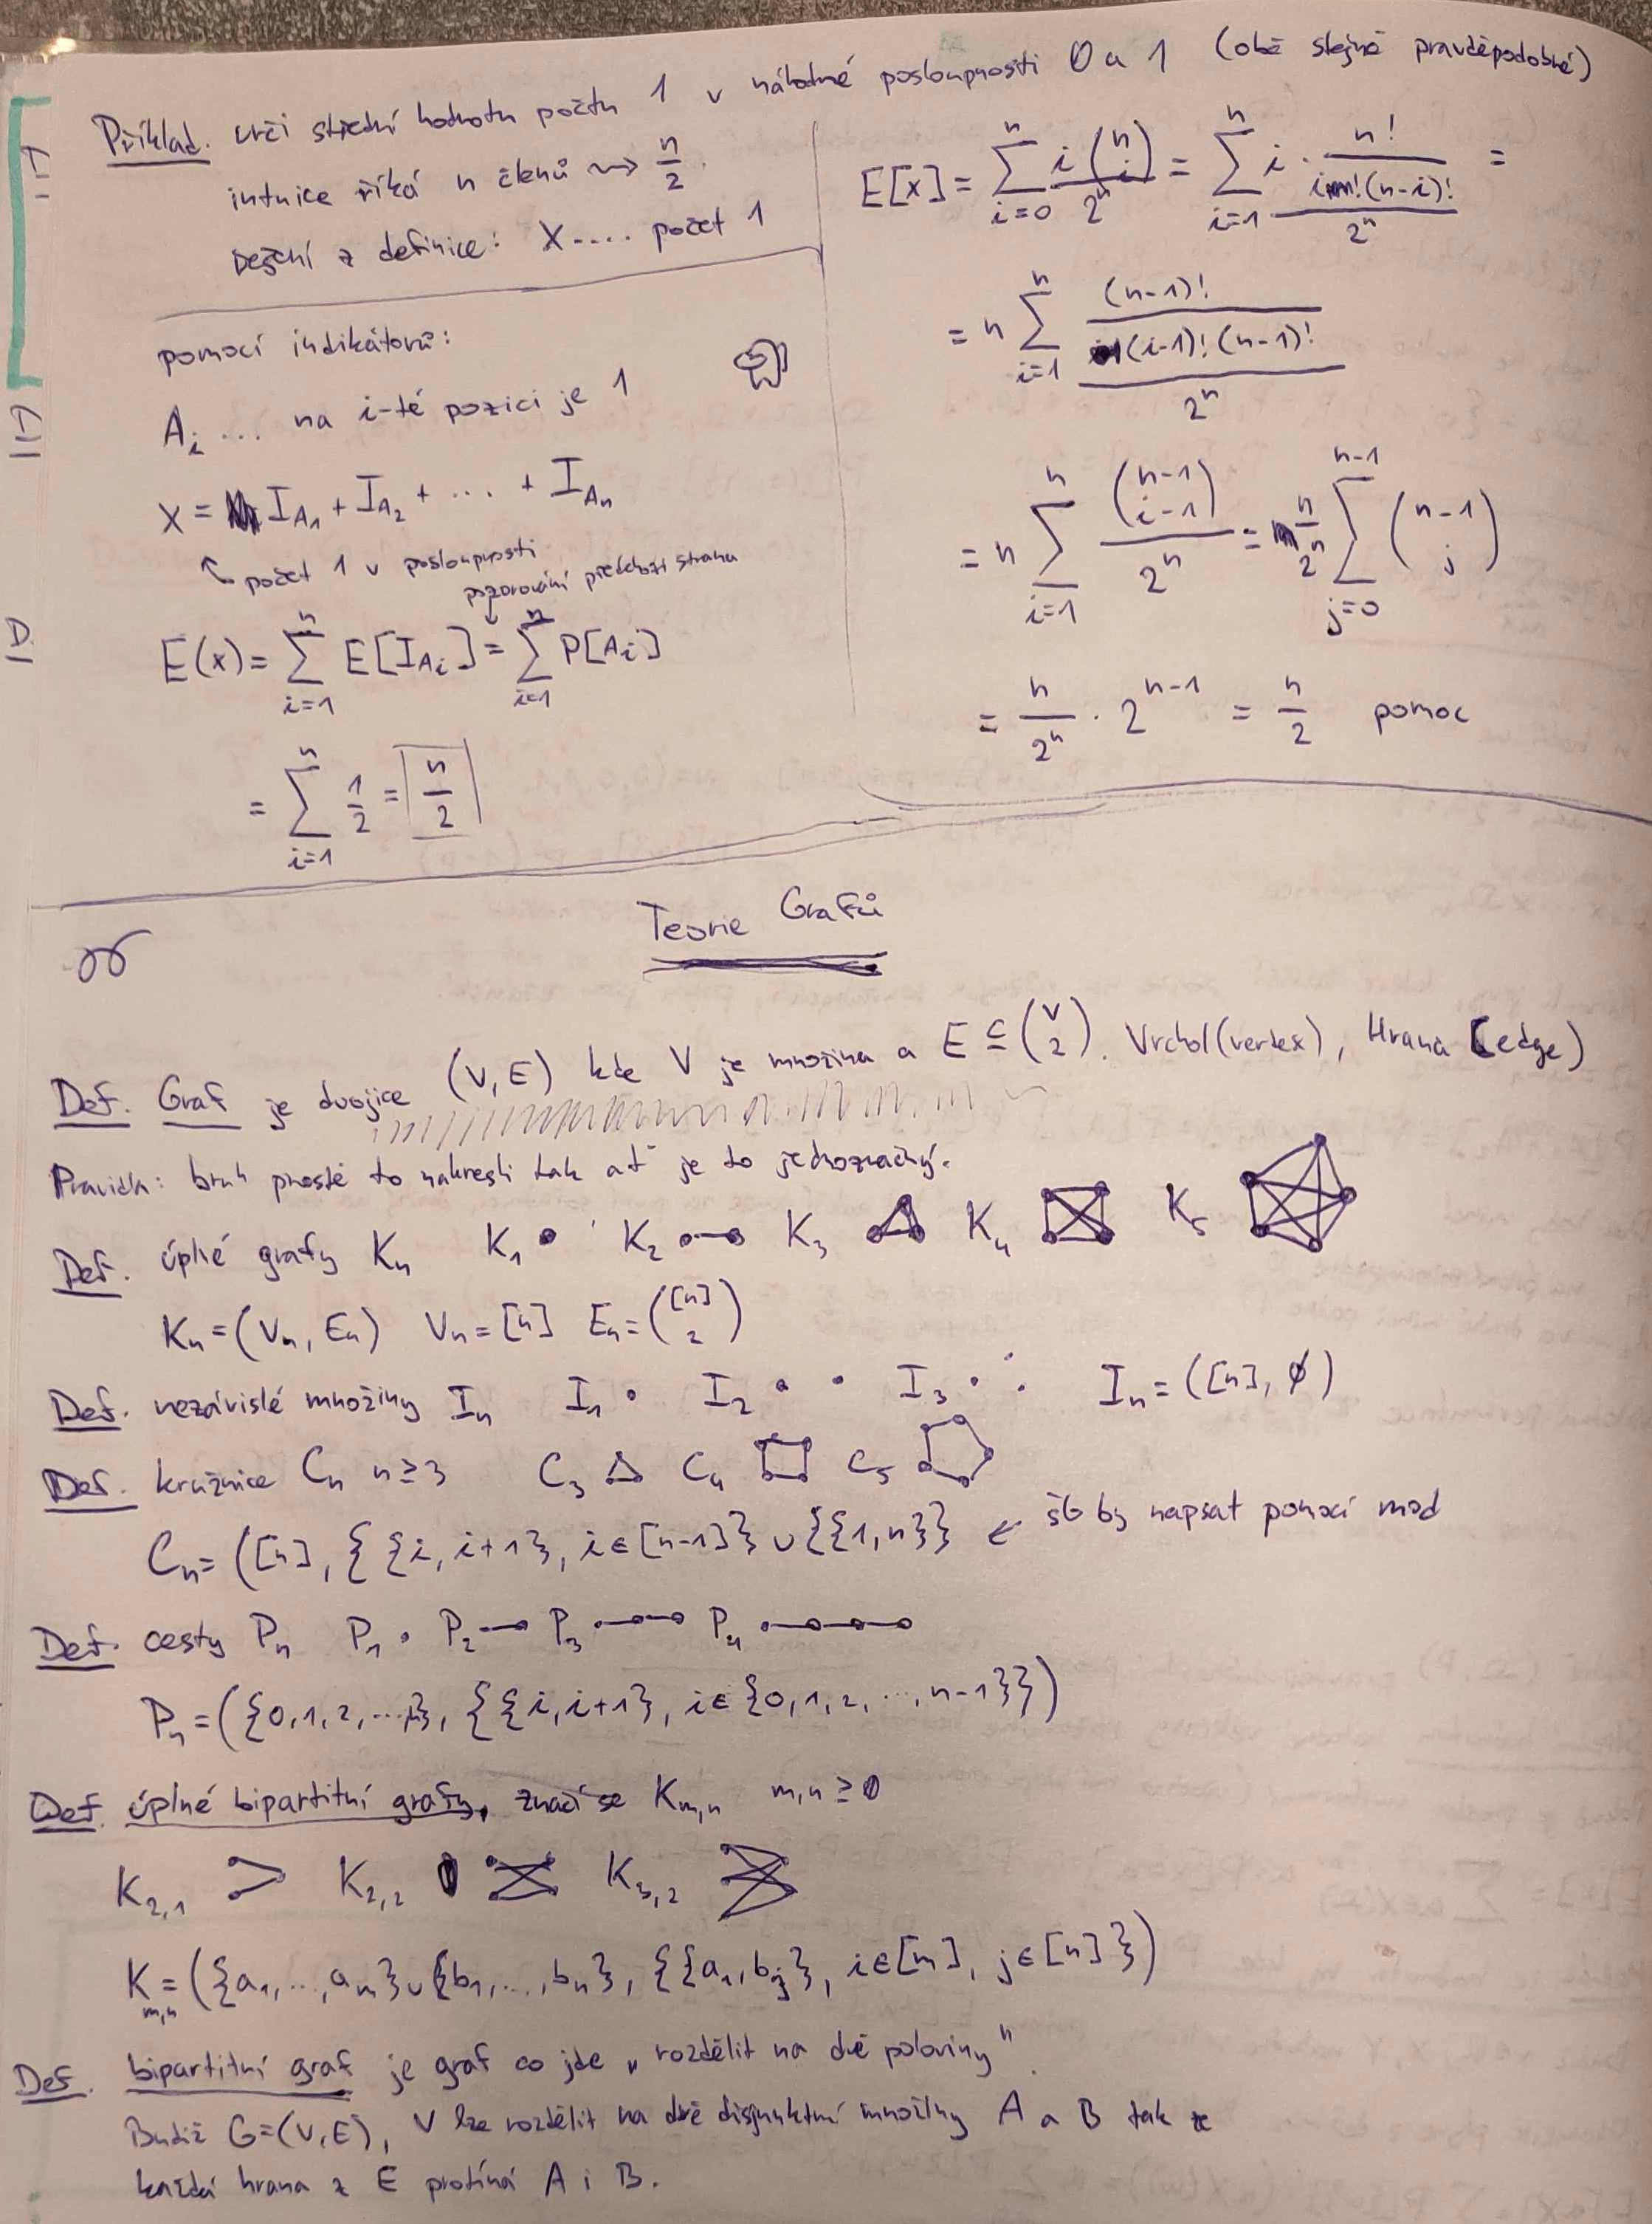 Příklad. urči střední hodnotu počtu 1 v náhodné posloupnosti 0 a 1 (obě stejně pravděpodobné)
intuice říká n členů ⇝ n/2.
řešení z definice: X .... počet 1
E[x] = ∑_{i=0}^{n} i (n i) / 2^n = ∑_{i=1}^{n} i · n! / (i!(n-i)!) / 2^n =
= n ∑_{i=1}^{n} (n-1)! / ((i-1)!(n-1)!) / 2^n
= n ∑_{i=1}^{n} (n-1 i-1) / 2^n = n/2^n ∑_{j=0}^{n-1} (n-1 j)
= n/2^n · 2^{n-1} = n/2 pomoc
pomocí indikátorů:
A_i ... na i-té pozici je 1
X = I_{A_1} + I_{A_2} + ... + I_{A_n}
počet 1 v posloupnosti
pozorování předchozí strana
E(x) = ∑_{i=1}^{n} E[I_{A_i}] = ∑_{i=1}^{n} P[A_i]
= ∑_{i=1}^{n} 1/2 = n/2
D
Teorie Grafů
Def. Graf je dvojice (V, E) kde V je množina a E ⊆ (V 2). Vrchol (vertex), Hrana (edge)
Pravidla: bruh prostě to nakresli tak ať je to jednoznačný.
Def. úplné grafy K_n K_1 K_2 K_3 K_4 K_5
K_n = (V_n, E_n) V_n = [n] E_n = ([n] 2)
Def. nezávislé množiny I_n I_1 I_2 I_3 I_n = ([n], ∅)
Def. kružnice C_n n ≥ 3 C_3 C_4 C_5
C_n = ([n], {{i, i+1}, i ∈ [n-1]} ∪ {{1, n}} ← šlo by napsat pomocí mod
Def. cesty P_n P_1 P_2 P_3 P_4
P_n = ({0, 1, 2, ..., n}, {{i, i+1}, i ∈ {0, 1, 2, ..., n-1}})
Def úplné bipartitní grafy, značí se K_{m,n} m,n ≥ 0
K_{2,1} K_{2,2} K_{3,2}
K_{m,n} = ({a_1, ..., a_m} ∪ {b_1, ..., b_n}, {{a_1, b_j}, i ∈ [m], j ∈ [n]})
Def. bipartitní graf je graf co jde „rozdělit na dvě poloviny".
Budiž G = (V, E), V lze rozdělit na dvě disjunktní množiny A a B tak že
každá hrana z E protíná A i B.